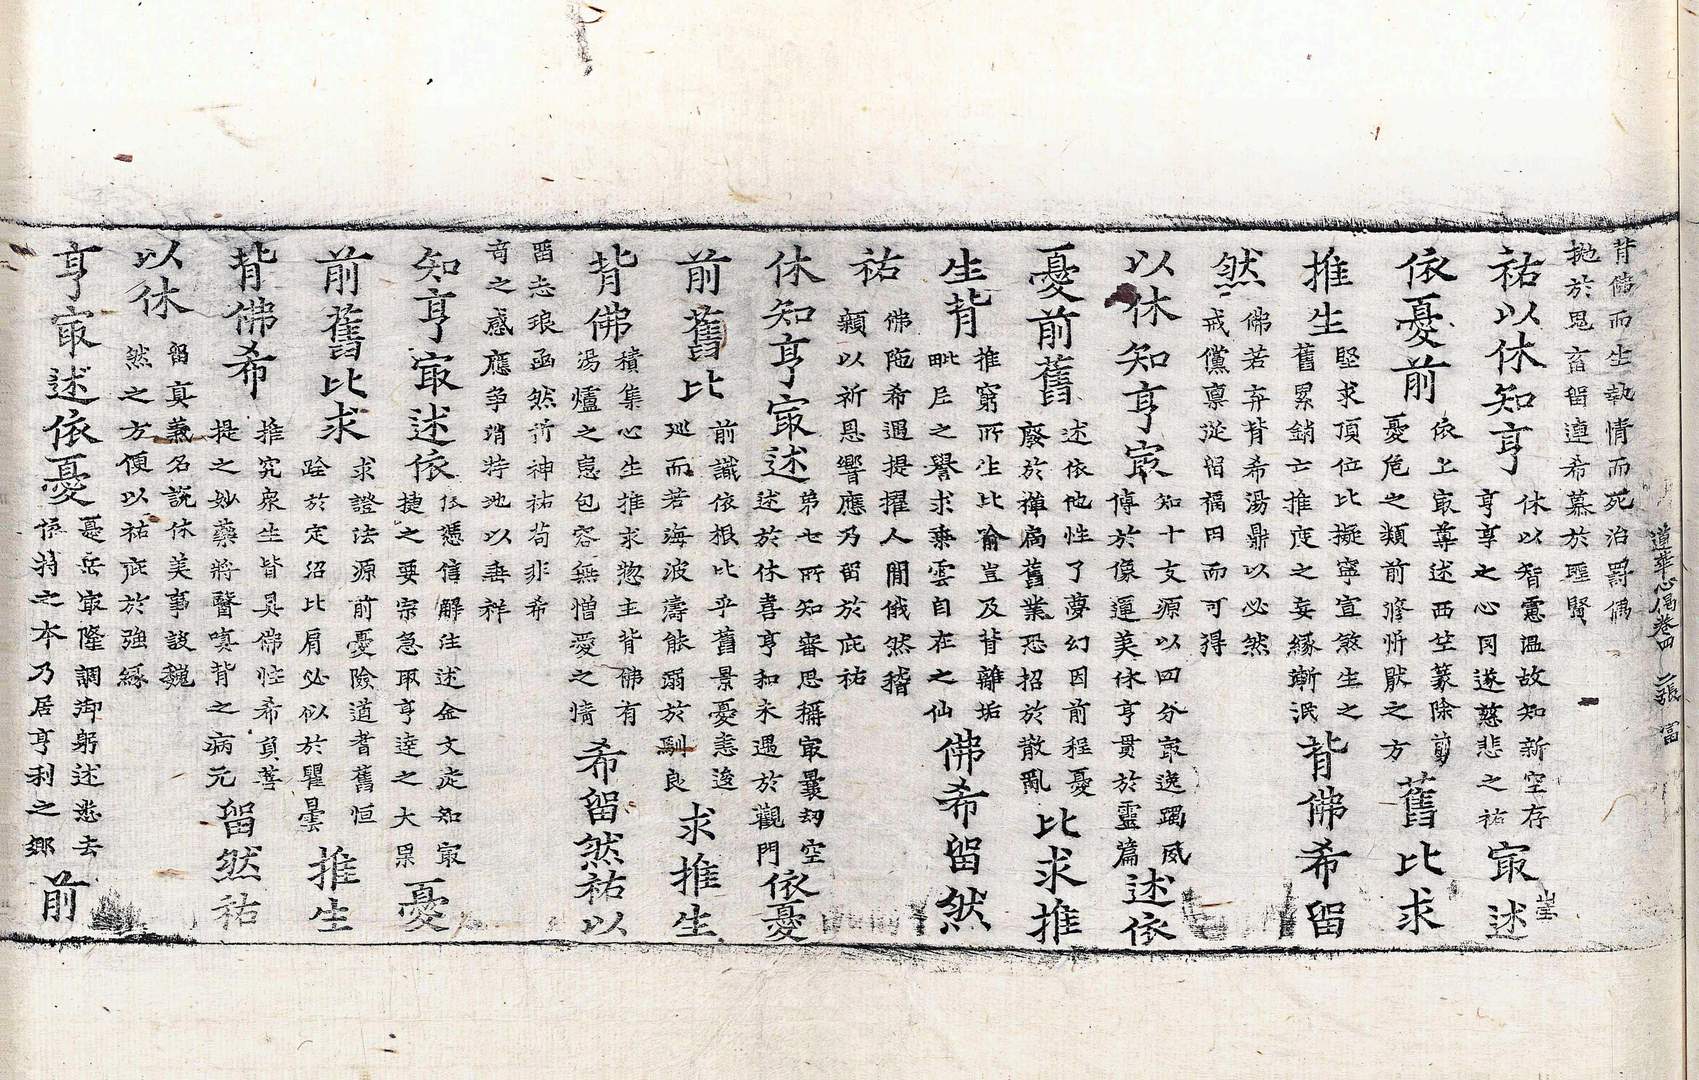 道華心偈卷四 二張 冨
背佛而生執情而死治罸偶
拋於恩畜留連希慕於聖賢
祐以休知亨
休以智慮温故知新空存
亨享之心冈遂慈悲之祐
㝡述
依憂前
依上㝡尊述西竺篆除剪
憂危之類前修忻猒之方
舊比求
推生
堅求頂位比擬寧宣煞生之
舊累銷亡推度之妄緣斬泯
背佛希留
然
佛若弃背希湯鼎以必然
戒儻禀從留福田而可得
以休知亨㝡
知十支源以四分㝡逸躅威
傅於像運美休亨貫於靈篇
述依
憂前舊
述依他性了夢幻因前程憂
廢於禅扃舊業恐招於散亂
比求推
生背
推窮所生比喻豈及背離垢
毗尼之譽求乗雲自在之仙
佛希留然
祐
佛陁希遇提擢人閒俄然稽
顙以祈恩響應乃留於庇祐
休知亨㝡述
第七所知審思稱㝡曩刼空
述於休喜亨和未遇於觀門
依憂
前舊比
前識依根比乎舊景憂恚逡
廵而若海波濤能溺於馴良
求推生
背佛
積集心生推求惣主背佛有
湯爐之崽包容無憎愛之情
希留然祐以
留忠琅函然祈神祐苟非希
竒之感應争消特地以垂祥
知亨㝡述依
依憑信解注述金文定知㝡
捷之要宗急取亨逵之大果
憂
前舊比求
求證法源前憂險道耆舊恒
跧於定沼比肩必似於瞿曇
推生
背佛希
推究衆生皆具佛性希負菩
提之妙藥將醫嗔背之病元
留然祐
以休
留真義名説休美事詖巍
然之方便以祐庇於強緣
亨㝡述依憂
憂岳㝡隆調御躬述恙去
恠特之本乃居亨利之鄉
前